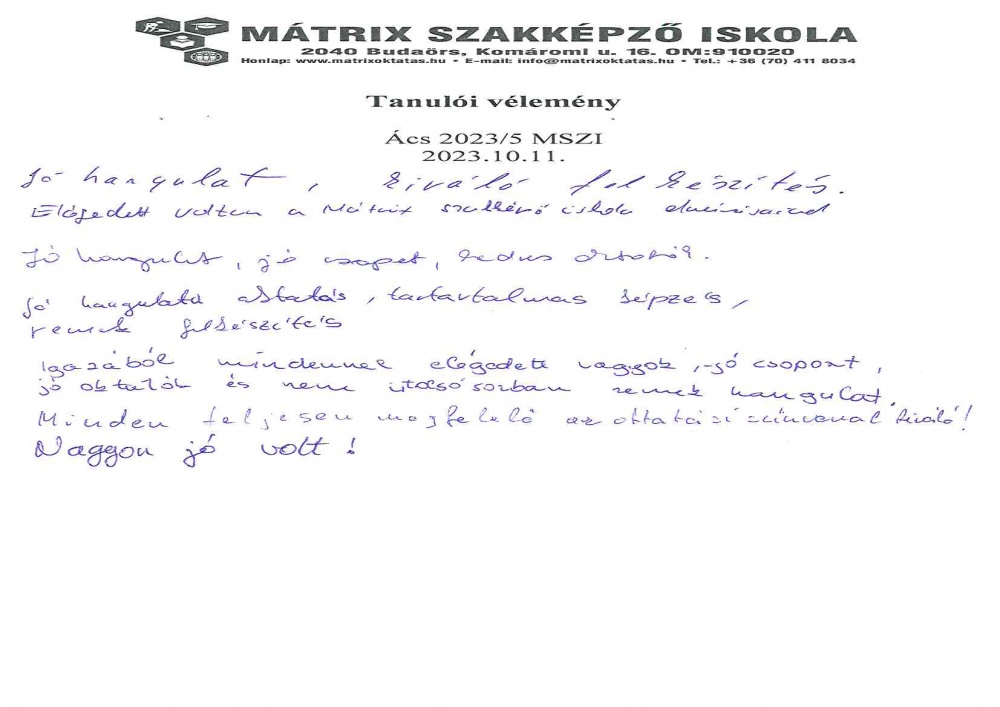 MÁTRIX SZAKKÉPZŐ ISKOLA
2040 Budaörs, Komáromi u. 16. OM:910020
Honlap: www.matrixoktatas.hu • E-mail: info@matrixoktatas.hu • Tel.: +36 (70) 411 8034
Tanulói vélemény
Ács 2023/5 MSZI
2023.10.11.
Jó hangulat, kiváló felkészítés.
Elégedett voltam a Mátrix szakképző iskola
Jó hangulat, jó csapat, kedves oktatók.
Jó hangulatú oktatás, tartartalmas képzés,
remek felkészítés
Igazából mindennel elégedett vagyok, jó csoport,
jó oktatók és nem utolsósorban remek hangulat.
Minden teljesen megfelelő az oktatási színvonal kiváló!
Naggyon jó volt!